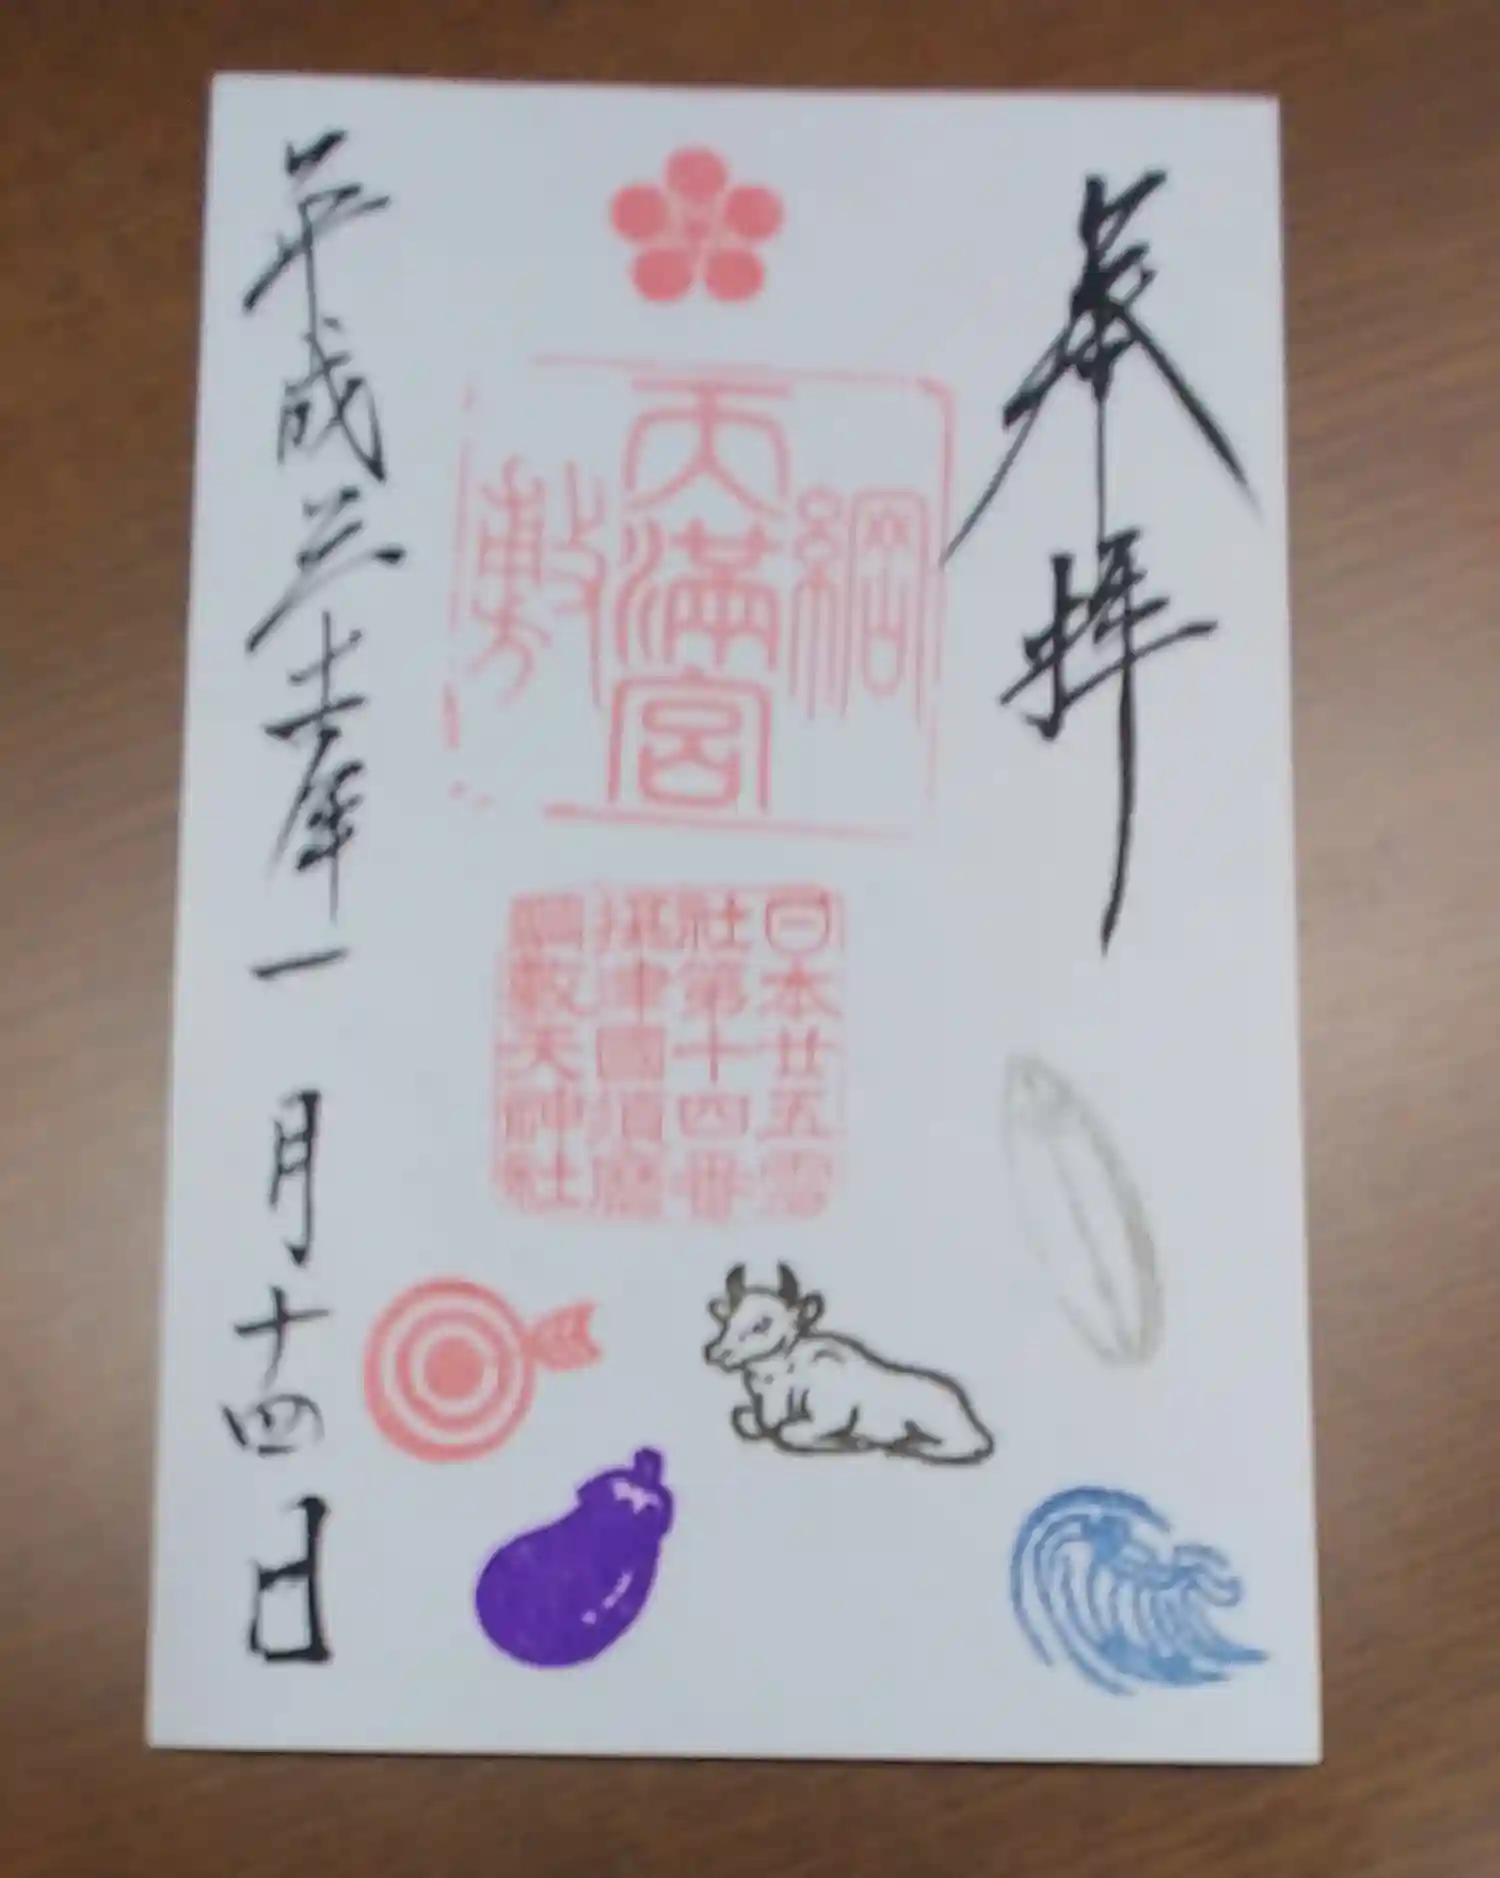 奉拝
綱
天満宮
敷
日本廿五霊
社第十四番
攝津國須磨
綱敷天神社
平成三十一年一月十四日